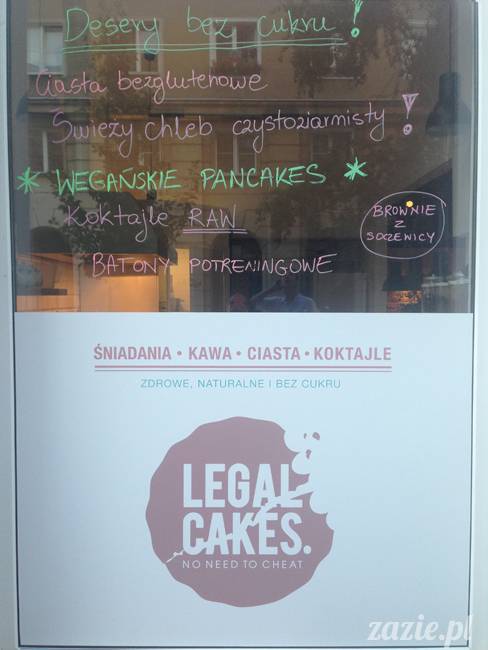 Desery bez cukru!
Ciasta bezglutenowe
Świeży chleb czystoziarnisty!
* WEGAŃSKIE PANCAKES *
Koktajle RAW
BROWNIE
Z
SOCZEWICY
BATONY POTRENINGOWE
ŚNIADANIA • KAWA • CIASTA • KOKTAJLE
ZDROWE, NATURALNE I BEZ CUKRU
LEGAL
CAKES.
NO NEED TO CHEAT
zazie.pl